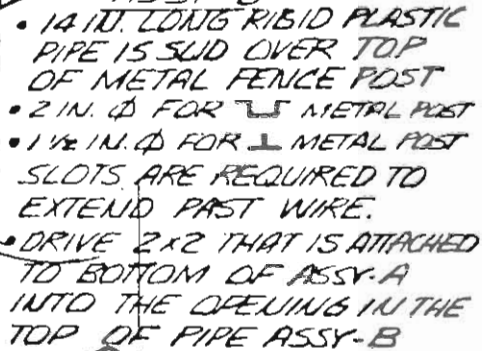 • 14 IN. LONG RIBID PLASTIC
PIPE IS SLID OVER TOP
OF METAL FENCE POST
• 2 IN. Ø FOR METAL POST
• 1 1/2 IN. Ø FOR METAL POST
SLOTS ARE REQUIRED TO
EXTEND PAST WIRE.
• DRIVE 2x2 THAT IS ATTACHED
TO BOTTOM OF ASSY-A
INTO THE OPENING IN THE
TOP OF PIPE ASSY-B